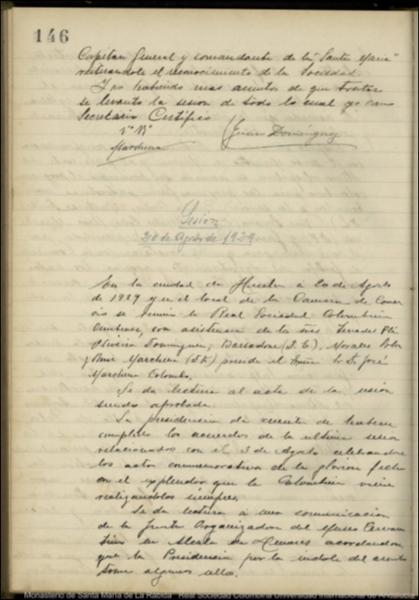 146
Capitan General y comandante de la "Santa Maria"
reiterandole el reconocimiento de la Sociedad.
Y no habiendo mas asuntos de que tratar
se levanto la sesion de todo lo cual yo como
Secretario Certifico
Vº Bº
Marchena
Juan Dominguez
Sesion
20 de Agosto de 1929
En la ciudad de Huelva a 20 de Agosto
de 1929 y en el local de la Camara de Comer
cio se reunio la Real Sociedad Colombina
Onubense, con asistencia de los Sres
Oliveira Dominguez, Morales
y Marchena preside el Sr D José
Marchena Colombo.
Se da lectura al acta de la sesion
siendo aprobada.
La presidencia da cuenta de haberse
cumplido los acuerdos de la ultima sesion
relacionados con el 3 de Agosto celebrandose
los actos conmemorativos de la gloriosa fecha
con el explendor que la Colombina viene
realizandolos siempre.
Se da lectura a una comunicacion
de la Junta Organizadora del Museo Cervan
tino en Alcala de Henares acordandose
que la Presidencia por la indole del asunto
tome algunos
Monasterio de Santa María de La Rábida - Real Sociedad Colombina Universidad Internacional de Andalucía